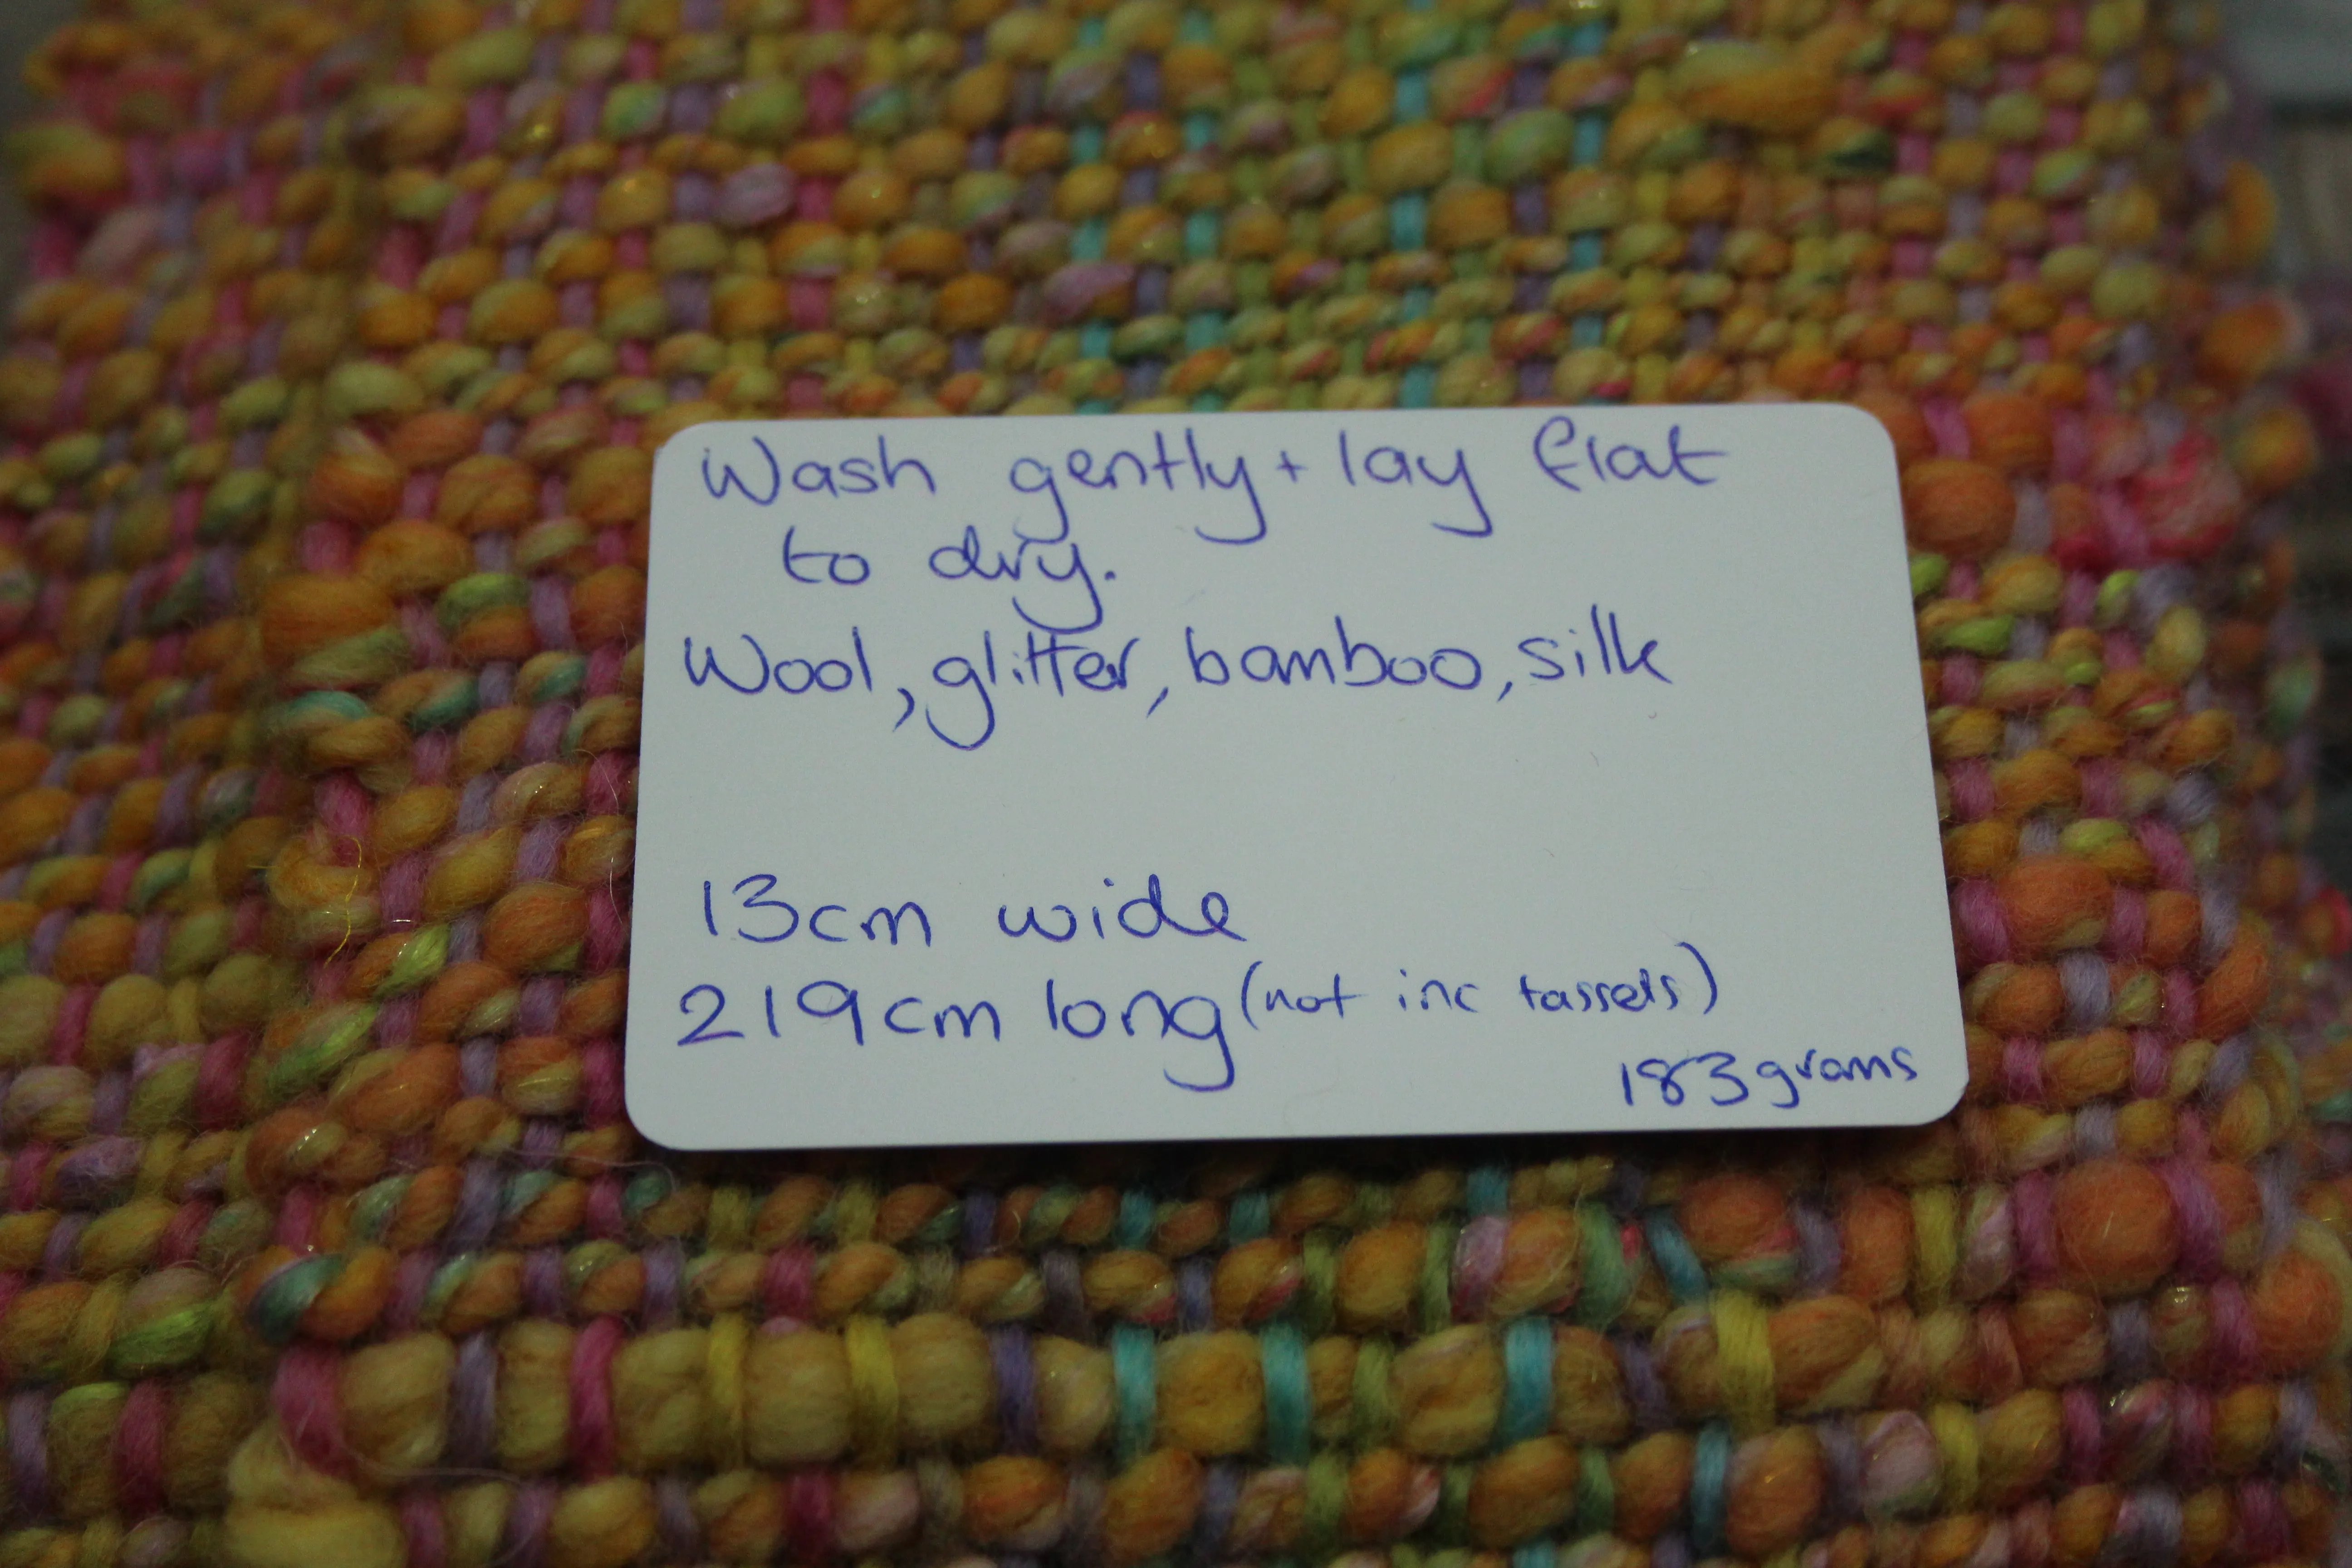 Wash gently + lay flat
to dry.
Wool, glitter, bamboo, silk
13cm wide
219cm long (not inc tassels)
183grams